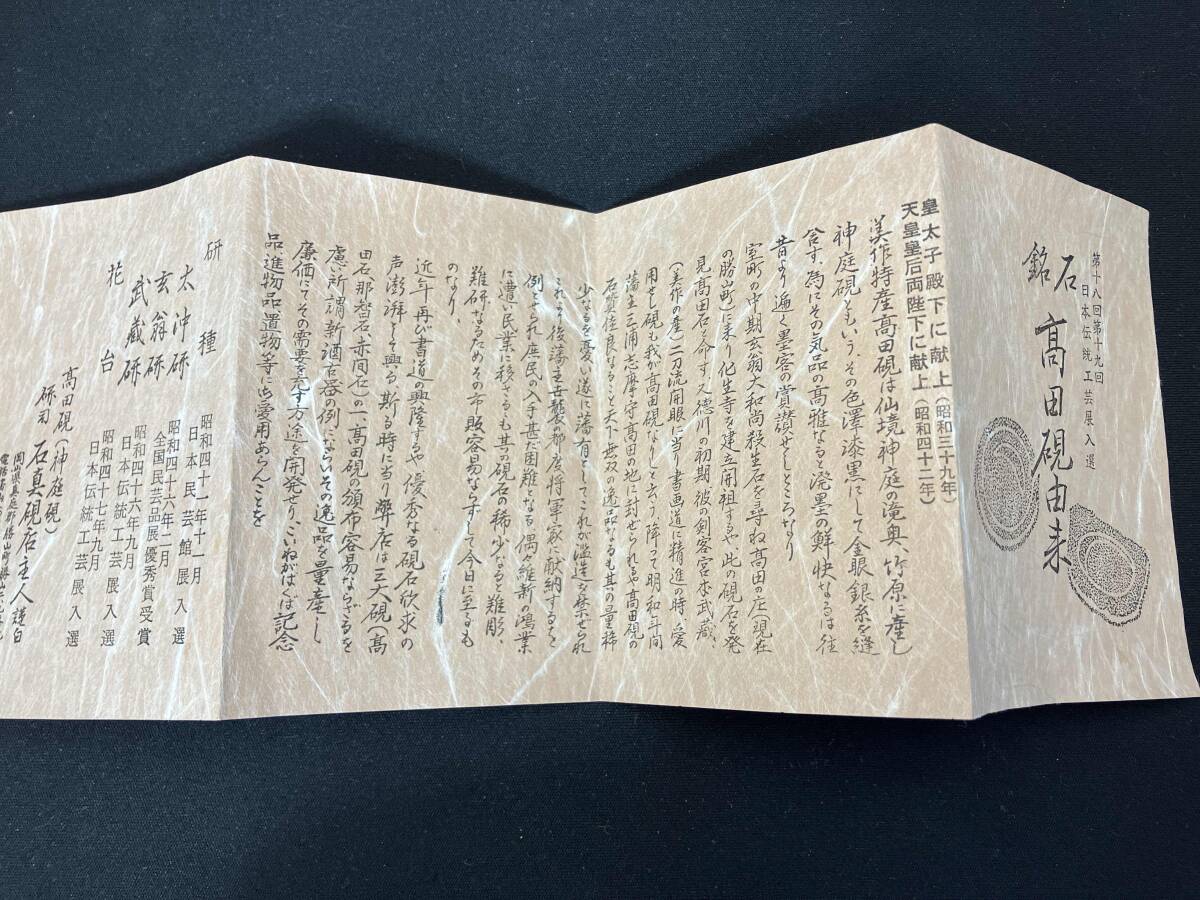 第十八回第十九回
日本伝統工芸展入選
銘石 髙田硯由来
皇太子殿下に献上(昭和三十九年)
天皇皇后両陛下に献上(昭和四十二年)
美作特産髙田硯は仙境神庭の滝奥、竹原に産し
神庭硯ともいう。その色澤漆黒にして金眼銀糸を縫
含す。為にその気品の髙雅なると溌墨の鮮快なるは往
昔より遍く墨客の賞讃せしところなり
室町の中期玄翁大和尚殺生石を尋ね髙田の庄(現在
の勝山町)に来り化生寺を建立開祖するや此の硯石を発
見髙田石と命す。又徳川の初期彼の剣客宮本武蔵、
(美作の産)二刀流開眼に当り書画道に精進の時、愛
用せし硯も我が髙田硯なりしと云う降って明和年間
藩主三浦志摩守髙田の地に封せられるや髙田硯の
石質佳良なること天下無双の逸品なるも其の量稀
少なるを憂い遂に藩有としてこれが濫造を禁せられ
これより後藩主古襲の都度将軍家に献納するを
例とせられ庶民の入手甚だ困難となる偶々維新の鴻業
に遭い民業に移さるゝも其の硯石の稀少なると難彫、
難研なるためその市販容易ならずして今日に至るも
のなり、
近年再び書道の興隆するや、優秀なる硯石欣求の
声澎湃として興る、斯る時に当り弊店は三大硯(髙
田石、那智石、赤間石)の一、髙田硯の頒布容易ならざるを
慮い所謂新酒古器の例にならいその逸品を量産し
廉価にてその需要を充す方途を開発せり、こいねがはくば記念
品、進物品、置物等に御愛用あらんことを
研種
太沖研 昭和四十一年十一月 日本民芸館展入選
玄翁研 昭和四十六年二月 全国民芸品展優秀賞受賞
武蔵研 昭和四十六年九月 日本伝統工芸展入選
花台 昭和四十七年九月 日本伝統工芸展入選
髙田硯(神庭硯)
研司 石真硯店主人謹白
岡山県真庭郡勝山町